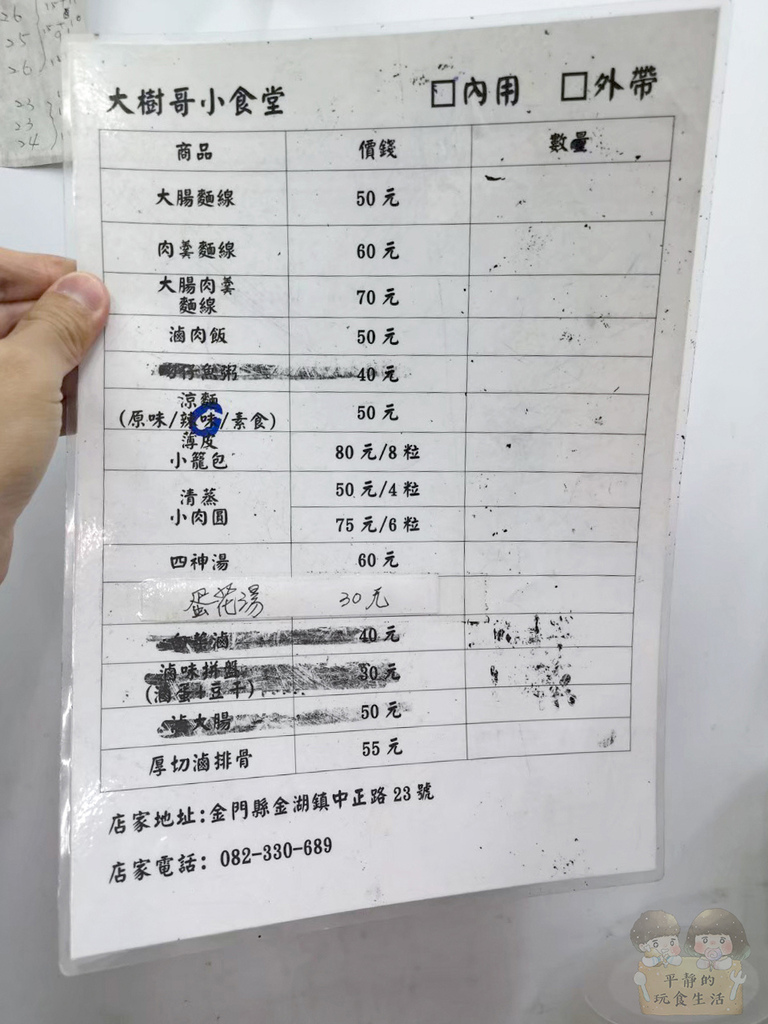 26
25
26
23
23
24
大樹哥小食堂 □內用 □外帶
商品 價錢 數量
大腸麵線 50 元
肉羹麵線 60 元
大腸肉羹
麵線 70 元
滷肉飯 50 元
仔魚粥 40 元
涼麵
(原味/辣味/素食) 50 元
薄皮
小籠包 80 元/8 粒
清蒸
小肉圓 50 元/4 粒
75 元/6 粒
四神湯 60 元
蛋花湯 30元
滷 40 元
滷味拼盤
(滷蛋+豆干) 30 元
大腸 50 元
厚切滷排骨 55 元
店家地址:金門縣金湖鎮中正路 23 號
店家電話: 082-330-689
平靜的
玩食生活